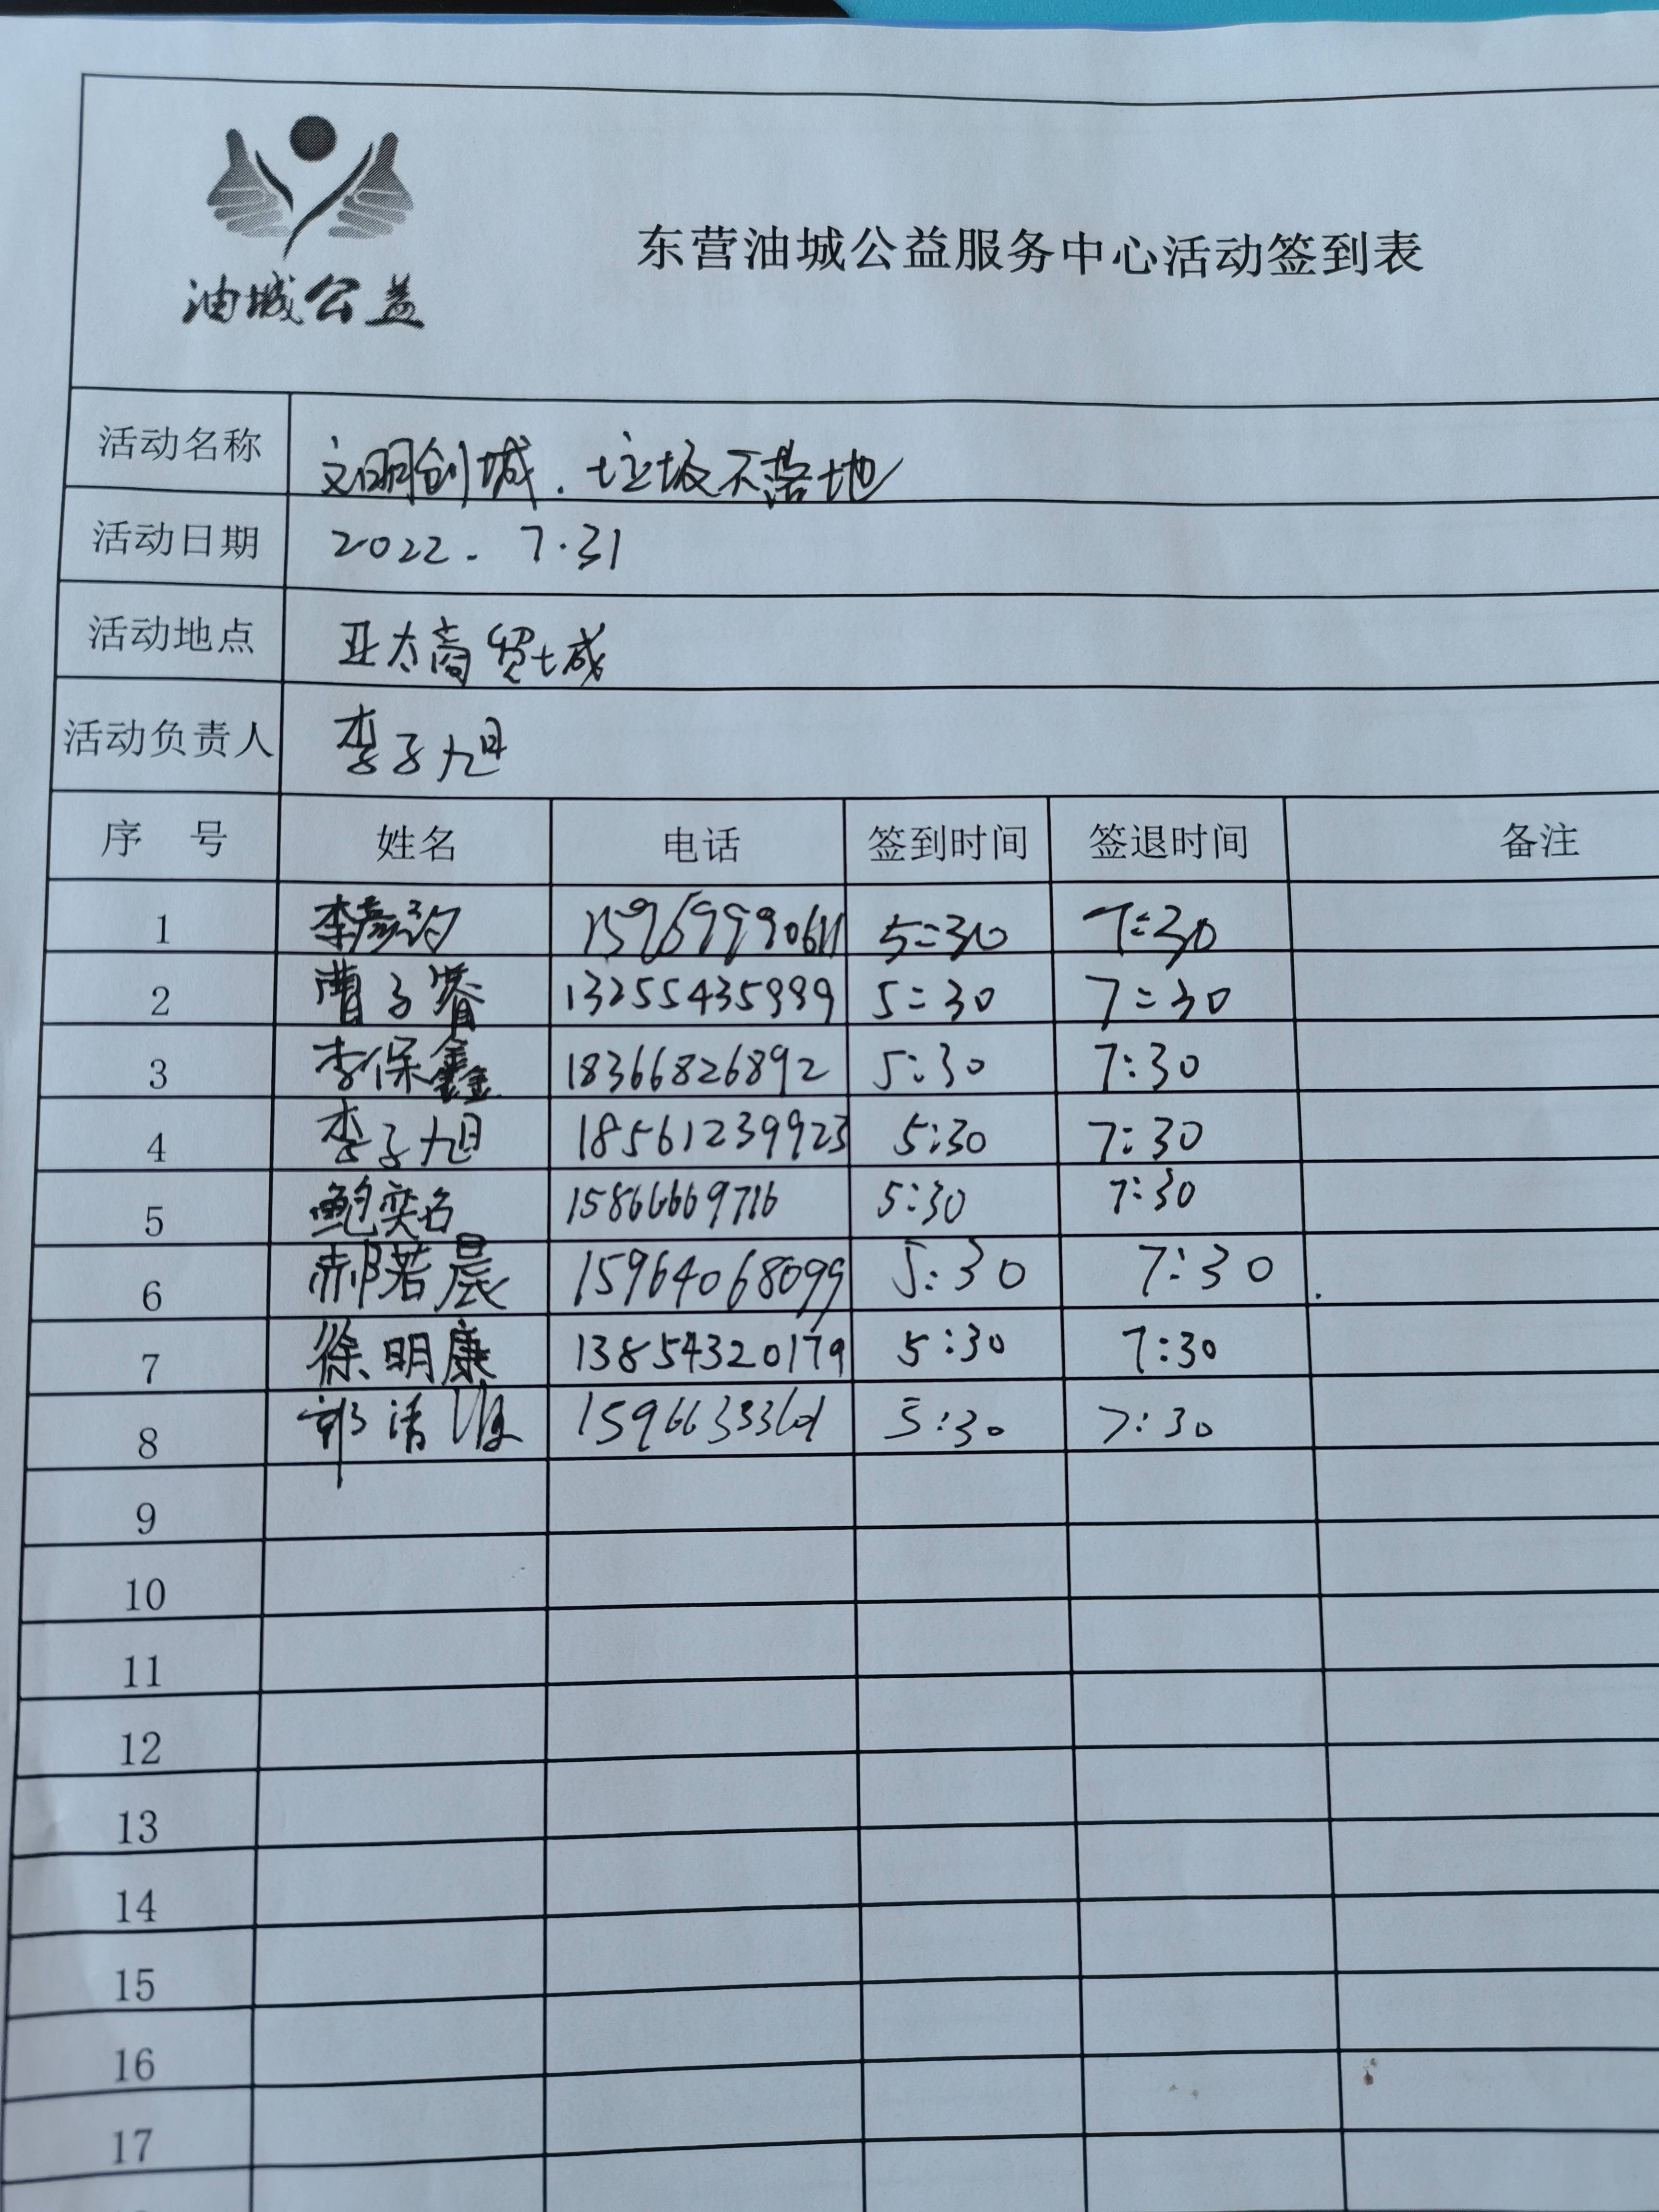 油城公益
东营油城公益服务中心活动签到表
活动名称 文明创城.垃圾不落地
活动日期 2022.7.31
活动地点 亚太商贸城
活动负责人 李子旭
序 号 姓名 电话 签到时间 签退时间 备注
1 李彦 5:30 7:30
2 曹子睿 13255435999 5:30 7:30
3 李保鑫 18366826892 5:30 7:30
4 李子旭 18561239923 5:30 7:30
5 鲍奕名 15866669716 5:30 7:30
6 郝若晨 15964068099 5:30 7:30
7 徐明康 13854320179 5:30 7:30
8 郭清 5:30 7:30
9
10
11
12
13
14
15
16
17